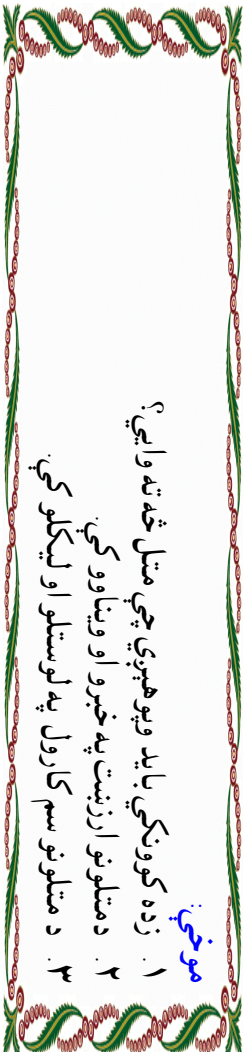 موخې:
۱. زده کوونکي بايد وپوهيږي چې متل څه ته وايي؟
۲. دمتلونو ارزښت په خبرو او ويناوو کې.
۳. د متلونو سم کارول په لوستلو او ليکلو کې.